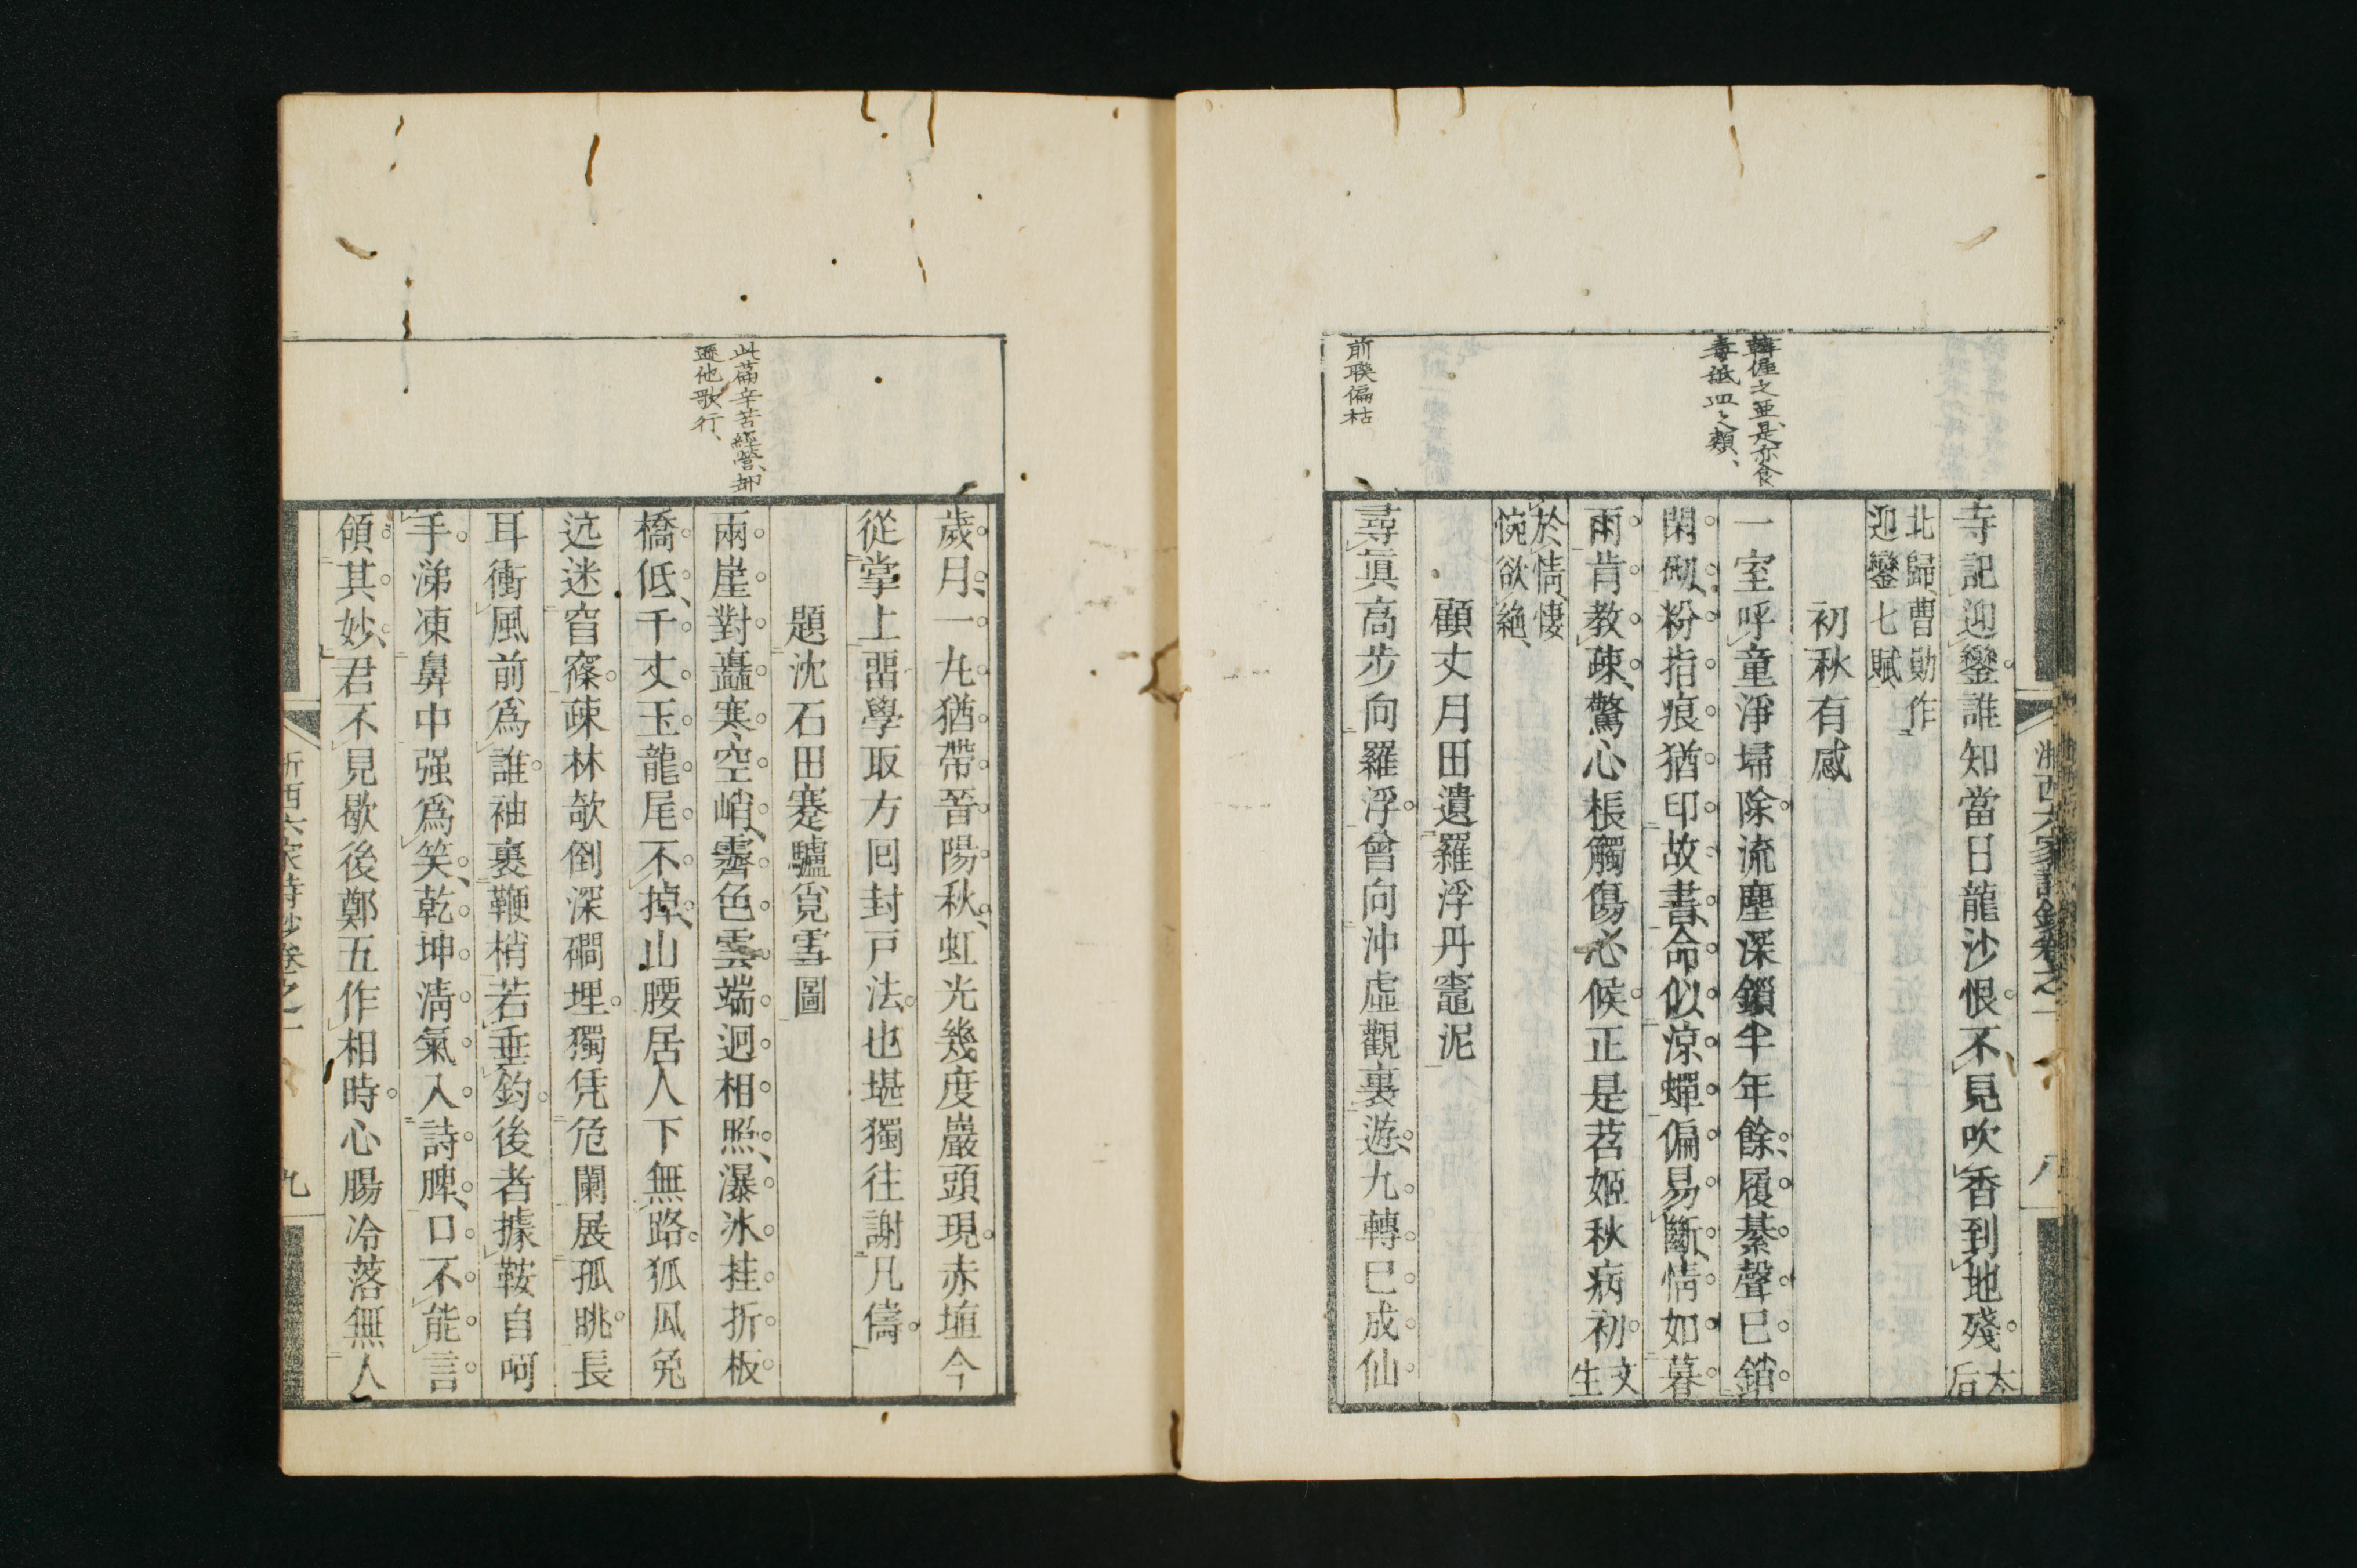 韓偓之亞、是亦食
毒紙皿之類、
前聯偏枯
浙西六家詩鈔卷之一
八
寺記迎鑾誰知當日龍沙恨不見吹香到地殘太后
北歸、曹勛作
迎鑾七賦、
初秋有感
一室呼童淨埽除流塵深鎖半年餘、履綦聲已銷
閑砌、粉指痕猶印故書、命似涼蟬偏易斷、情如暮
雨肯教疎、驚心棖觸傷心候正是茗姬秋病初文生
於情、悽
惋欲絶、
顧丈月田遺羅浮丹竈泥
尋眞高步向羅浮曾向沖虛觀裏遊、九轉已成仙
此篇辛苦經營、却
遜他歌行、
歲月、一丸猶帶晉陽秋、虹光幾度巖頭現赤埴今
從掌上畱學取方囘封戸法也堪獨往謝凡儔
題沈石田蹇驢覓雪圖
兩崖對矗寒空峭、霽色雲端迥相照、瀑冰挂折板
橋低、千丈玉龍尾不掉、山腰居人下無路狐瓜兔
迒迷窅窱疎林欹倒深磵埋獨凭危闌展孤眺長
耳衝風前爲誰袖裏鞭梢若垂釣後者據鞍自呵
手涕凍鼻中强爲笑、乾坤淸氣入詩脾、口不能言
領其妙、君不見歇後鄭五作相時心腸冷落無人
浙西六家詩鈔卷之一
九